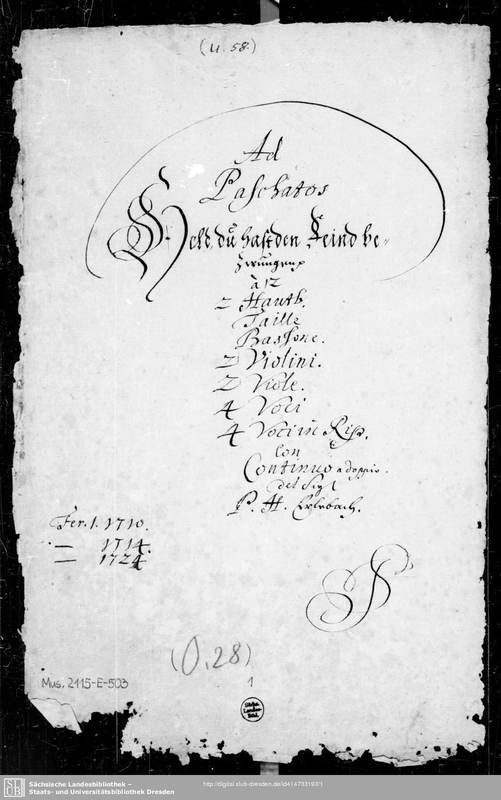 (U. 58.)
Ad
Paschatos
Held, du hast den Feind be-
zwungen
à 12
2 Hautb.
Taille
Bassone.
2 Violini.
2 Viole.
4 Voci
4 Voci in Rip.
con
Continuo a doppio.
del Sigr
P. H. Erlebach.
Fer. 1. 1710.
— 1714.
— 1724
(O. 28)
Mus. 2115-E-503
1
Sächs.
Landes-
Bibl.
SLUB
Sächsische Landesbibliothek –
Staats- und Universitätsbibliothek Dresden
http://digital.slub-dresden.de/id414733193/1